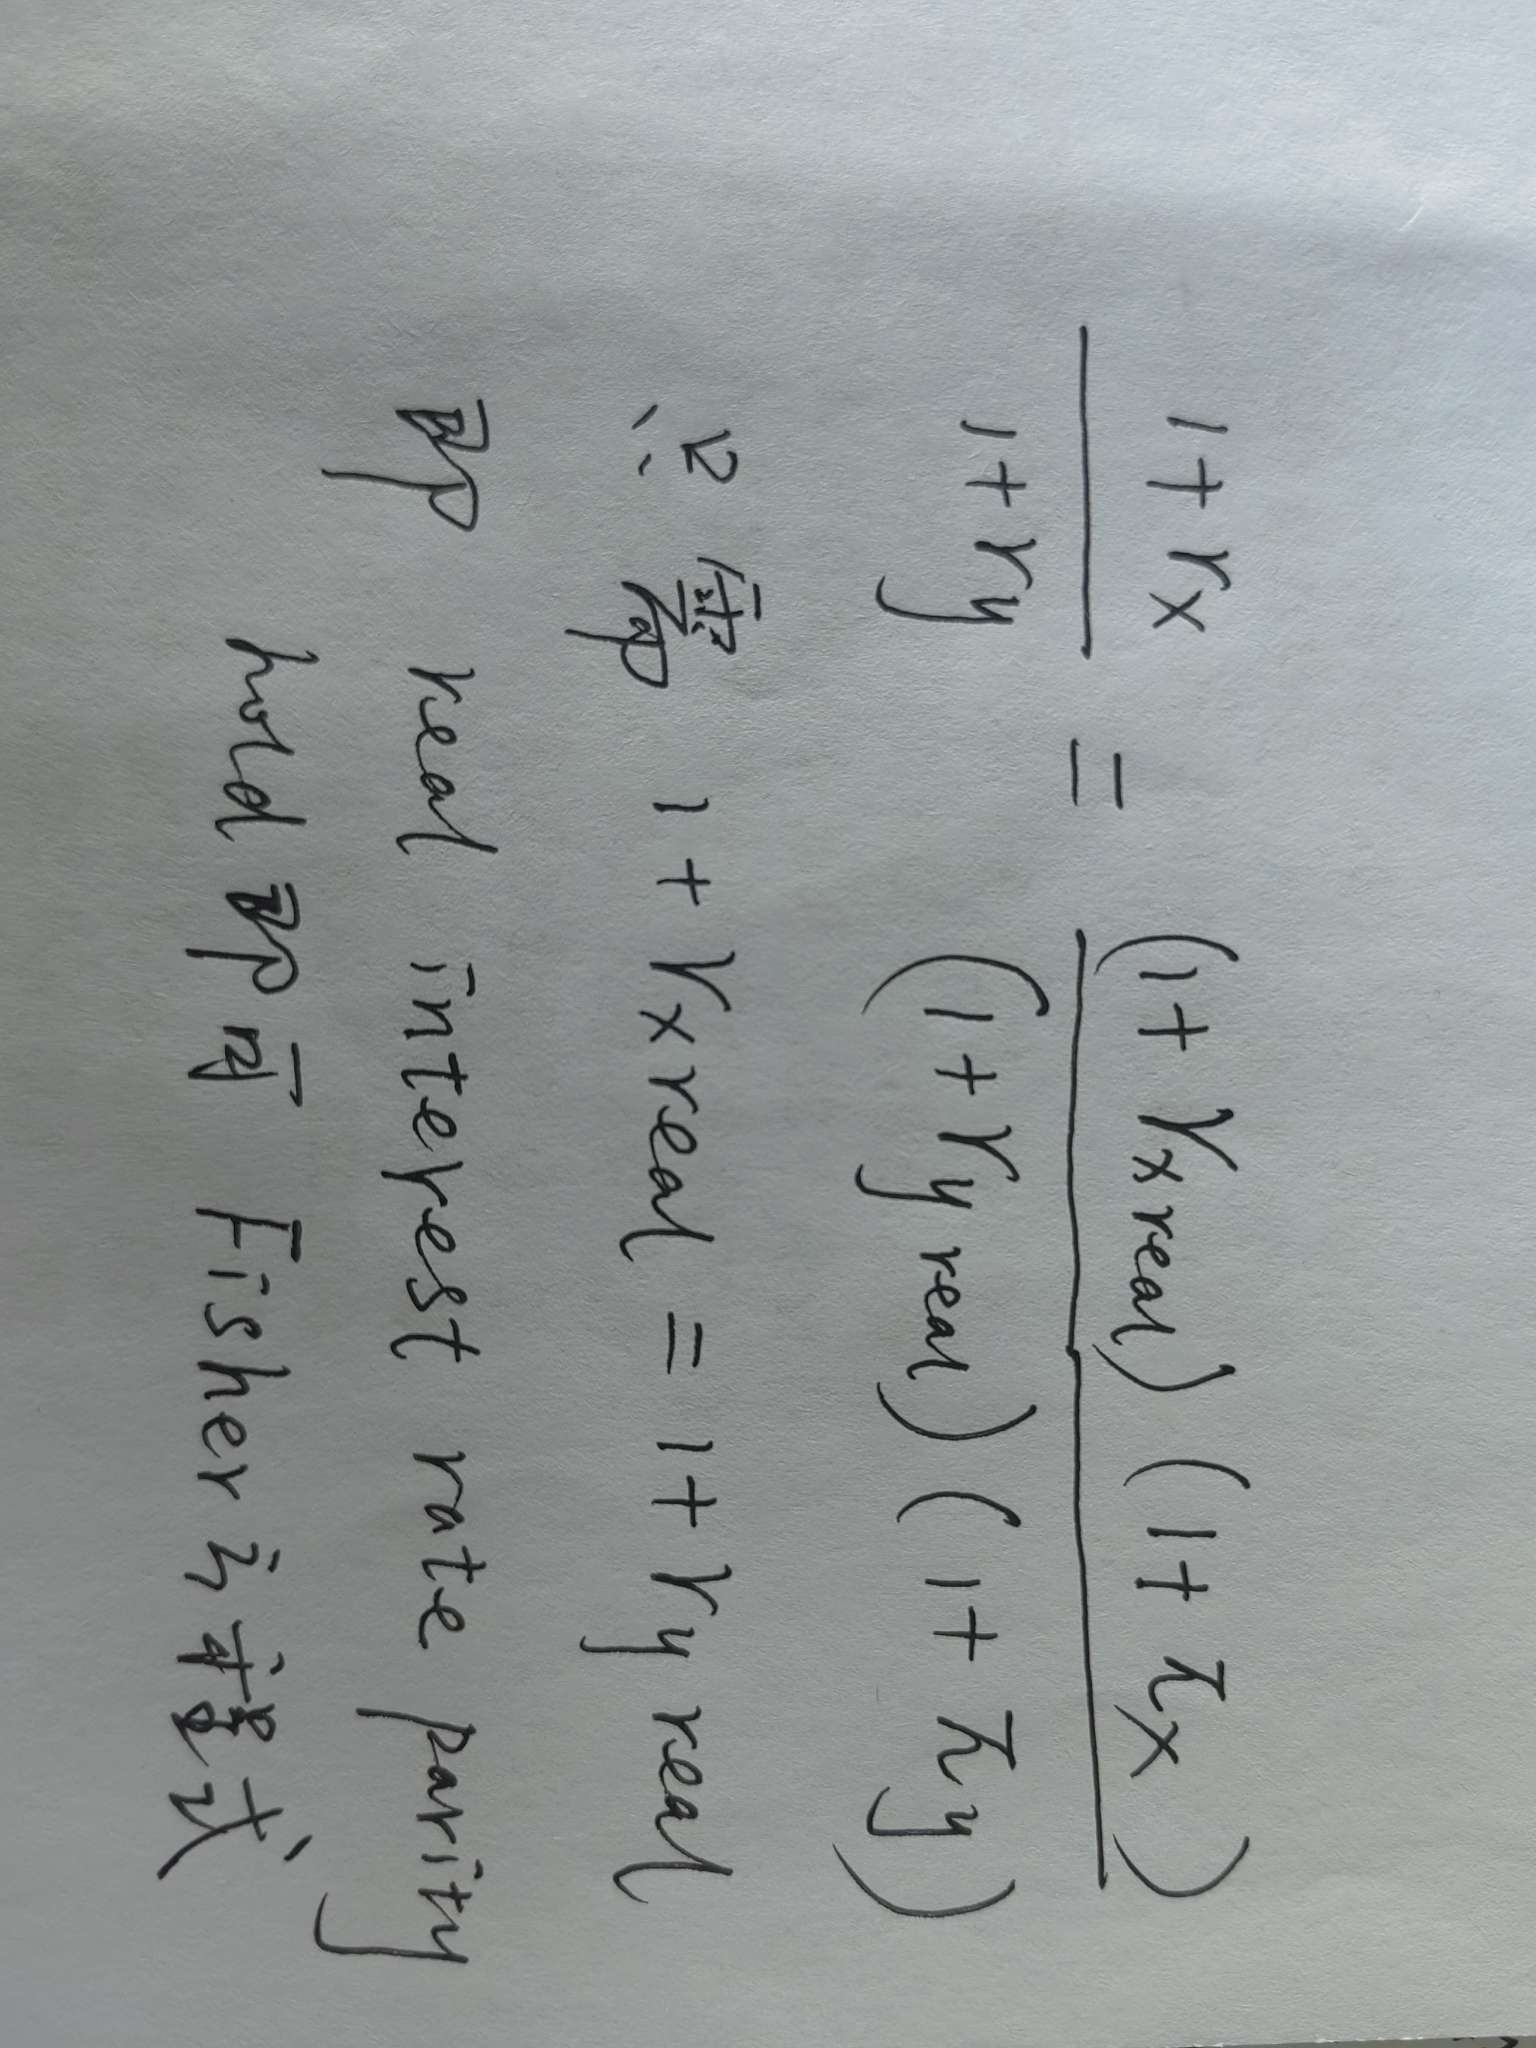 1+rx / 1+ry = (1+rx real)(1+πx) / (1+ry real)(1+πy)
∴ 只需 1+rx real = 1+ry real
即 real interest rate parity
hold 即可 Fisher 才能成